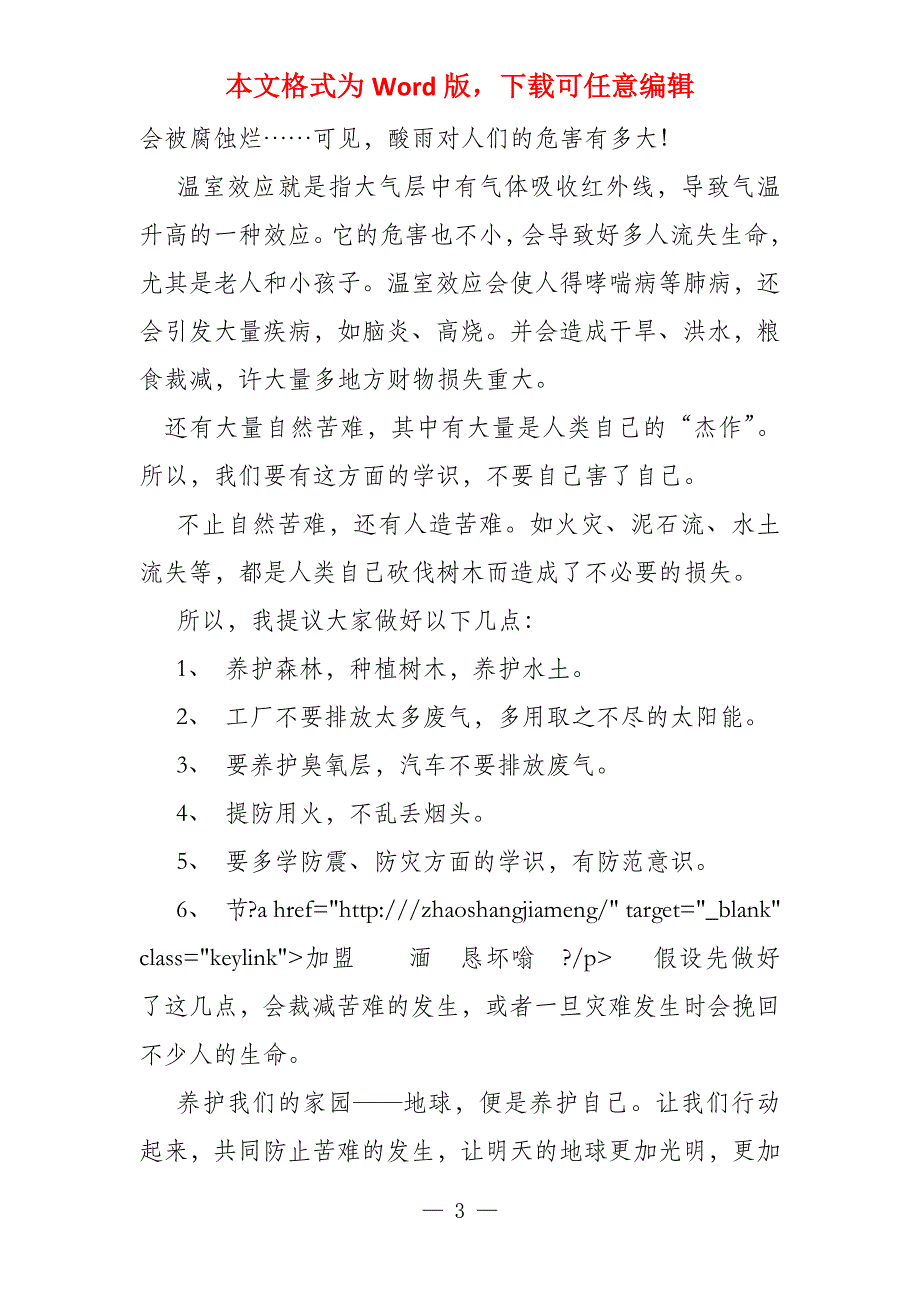 本文格式为 Word 版，下载可任意编辑
会被腐蚀烂……可见，酸雨对人们的危害有多大！
温室效应就是指大气层中有气体吸收红外线，导致气温
升高的一种效应。它的危害也不小，会导致好多人流失生命，
尤其是老人和小孩子。温室效应会使人得哮喘病等肺病，还
会引发大量疾病，如脑炎、高烧。并会造成干旱、洪水，粮
食裁减，许大量多地方财物损失重大。
还有大量自然苦难，其中有大量是人类自己的“杰作”。
所以，我们要有这方面的学识，不要自己害了自己。
不止自然苦难，还有人造苦难。如火灾、泥石流、水土
流失等，都是人类自己砍伐树木而造成了不必要的损失。
所以，我提议大家做好以下几点：
1、 养护森林，种植树木，养护水土。
2、 工厂不要排放太多废气，多用取之不尽的太阳能。
3、 要养护臭氧层，汽车不要排放废气。
4、 提防用火，不乱丢烟头。
5、 要多学防震、防灾方面的学识，有防范意识。
6、 节?a href="http:///zhaoshangjiameng/" target="_blank"
class="keylink">加盟 湎 恳坏嗡 ?/p> 假设先做好
了这几点，会裁减苦难的发生，或者一旦灾难发生时会挽回
不少人的生命。
养护我们的家园——地球，便是养护自己。让我们行动
起来，共同防止苦难的发生，让明天的地球更加光明，更加
— 3 —